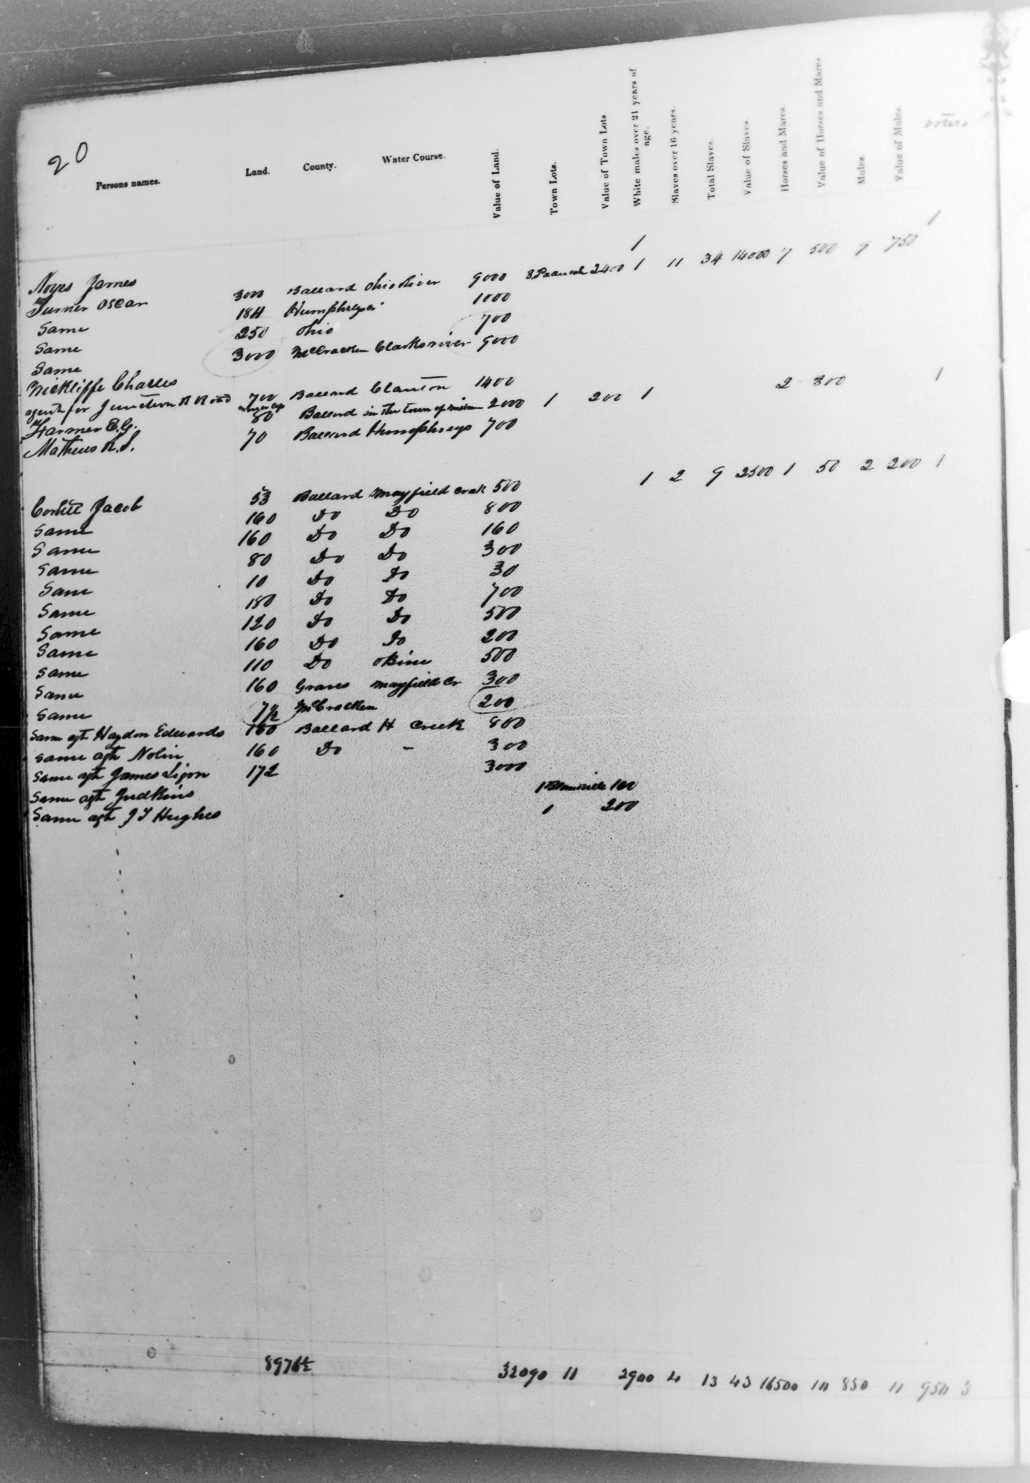 20
Persons names. Land. County. Water Course. Value of Land. Town Lots. Value of Town Lots White males over 21 years of age. Slaves over 16 years. Total Slaves. Value of Slaves. Horses and Mares. Value of Horses and Mares Mules. Value of Mules. voters
Noyes James 1 1
Turner Oscar 3000 Ballard Ohio River 9000 8 Paducah 2400 1 11 34 14000 7 500 9 750
Same 1811 Humphreys 1000
Same 250 Ohio 700
Same 3000 McCracken Clarks river 9000
Wickliffe Charles
agent for Junction R Road 700 Ballard Clanton 1400 2 300 1
Farmer E.G. 80 Ballard in the town of 2000 1 200 1
Mathews R.S. 70 Ballard Humphreys 700
Corbitt Jacob 53 Ballard Mayfield Creek 500 1 2 9 2500 1 50 2 200 1
Same 160 Do Do 800
Same 160 Do Do 160
Same 80 Do Do 300
Same 10 Do Do 30
Same 180 Do Do 700
Same 120 Do Do 500
Same 160 Do Do 200
Same 110 Do Obine 500
Same 160 Graves Mayfield Cr 300
Same 7½ McCracken 200
Same agt Haydon Edwards 160 Ballard H Creek 800
Same agt Nolin 160 Do - 300
Same agt James Ligon 172 3000
Same agt Judkins 1 100
Same agt J T Hughes 1 200
8976½ 32090 11 2900 4 13 43 16500 10 850 11 950 3